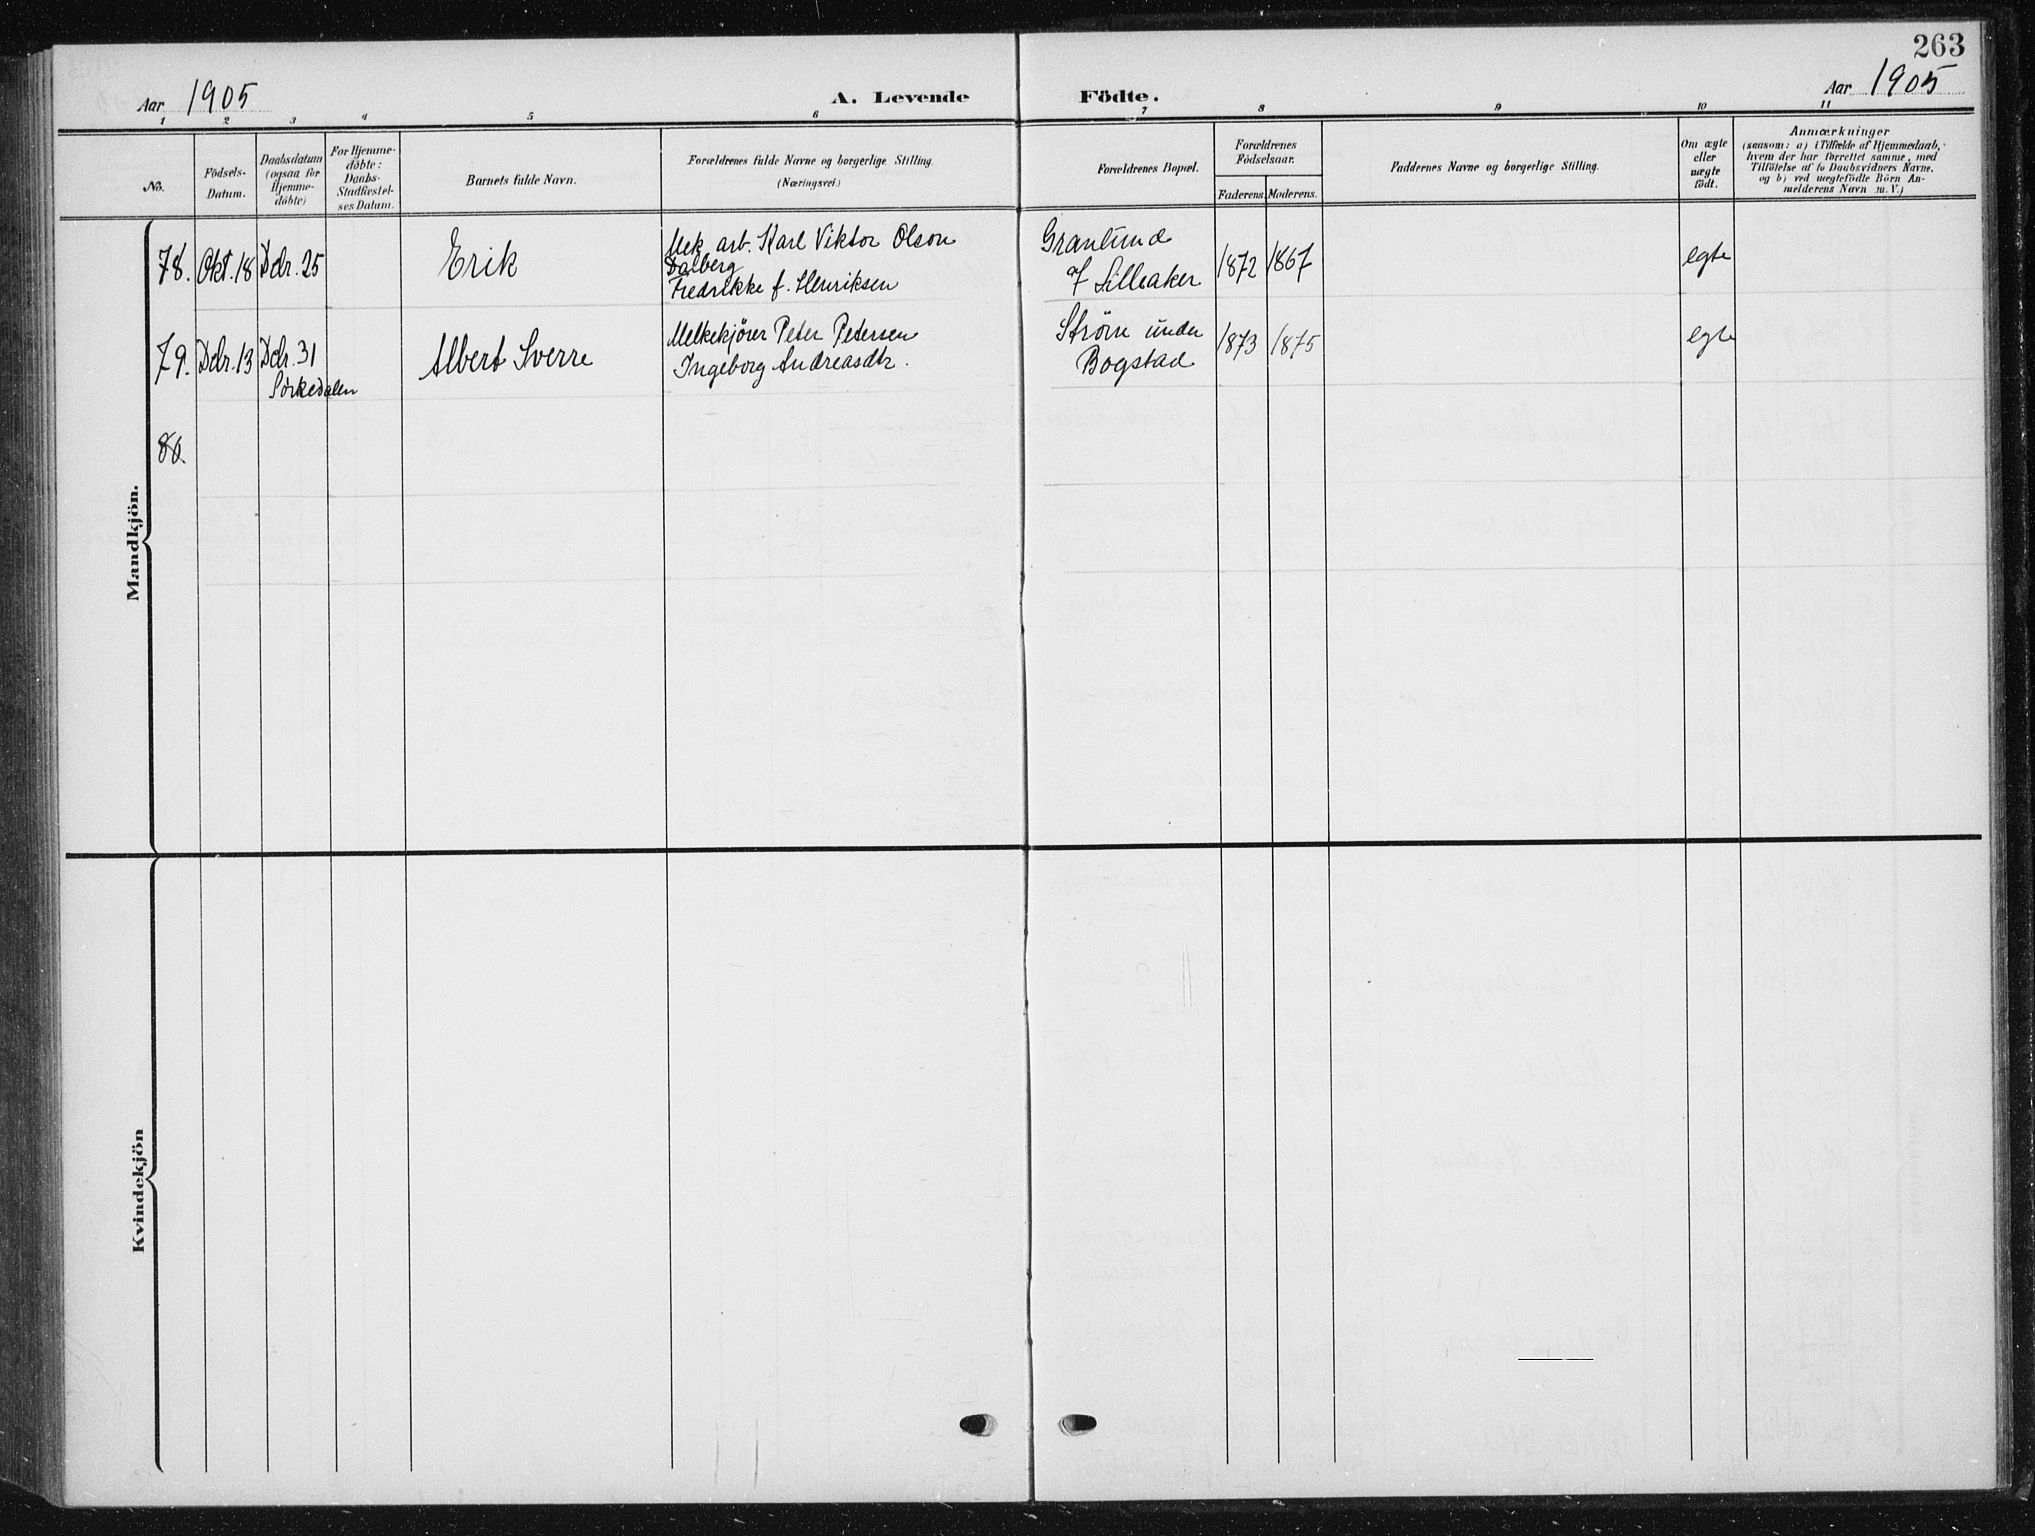 263
Aar 1905
A. Levende
Födte.
Aar 1905
1 2 3 4 5 6 7 8 9 10 11
No.
Födsels-
Datum.
Daabsdatum
(ogsaa for
Hjemme-
döbte)
For Hjemme-
döbte:
Daabs-
Stadfæstel-
ses Datum.
Barnets fulde Navn.
Forældrenes fulde Navne og borgerlige Stilling.
(Næringsvei.)
Forældrenes Bopæl.
Forældrenes
Födselsaar.
Faderens.
Moderens.
Faddernes Navne og borgerlige Stilling.
Om ægte
eller
uægte
födt.
Anmærkninger
(saasom: a) i Tilfælde af Hjemmedaab,
hvem der har forrettet samme, med
Tilföielse af to Daabsvidners Navne.
og b) ved uægtefödte Börn An-
melderens Navn m. V.)
Mandkjön.
78. Okt. 18 Dcbr. 25
Erik
Mek. arb. Karl Viktor Olson
Dalberg
Fredrikke f. Henriksen
Granlund
af Lilleaker
1872 1867
egte
79. Dcbr. 13 Dcbr. 31
Sörkedalen
Albert Sverre
Melkekjörer Peter Petersen
Ingeborg Andreasdtr.
Ström under
Bogstad
1873 1875
egte
80.
Kvindekjön